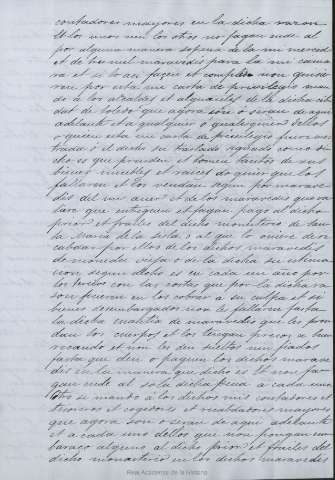 contadores mayores en la dicha razon
E los unos nin los otros no fagan ende al
por alguna manera so pena de la mi merced
et de dies mil maravedis para la mi cama
ra et si lo asi façer et complir non quisie
ren por esta mi carta de privilegio man
do á los alcaldes et alguaciles de la dicha cib
dat de Toledo que agora son ó seran de aqui
adelante et a qualquier ó qualesquier dellos
a quien esta mi carta de privilegio fuere mos
trada ó el dicho su traslado signado como di
cho es que prenden et tomen tantos de sus
bienes muebles et raices do quier que los
fallaren et los vendan segun por marave
dis del mi aver et de los maravedis que va
lieren que entreguen et fagan pago al dicho
prior et frailes del dicho monesterio de San
ta Maria de la Sisla ó al que lo oviere de re
cabdar por ellos de los dichos maravedis
de moneda vieja o de la dicha su estima
cion segun dicho es en cada un año por
los tercios con las costas que por la dicha ra
son fisieren en los cobrar a su culpa et si
bienes desembargados non le fallaren fasta
la dicha cuantia de maravedis que les pren
dan los cuerpos et los tengan presos a buen
recando et non los den sueltos nin fiados
fasta que den o paguen los dichos marave
dis en la manera que dicho es Et non fa
gan ende al so la dicha pena a cada uno
Otro si mando á los dichos mis contadores et
tesoreros et cogedores et recabdadores mayores
que agora son o seran de aqui adelante
et a cada uno dellos que non pongan em
bargo alguno al dicho prior et frailes del
dicho monasterio en los dichos maravedis
Real Academia de la Historia